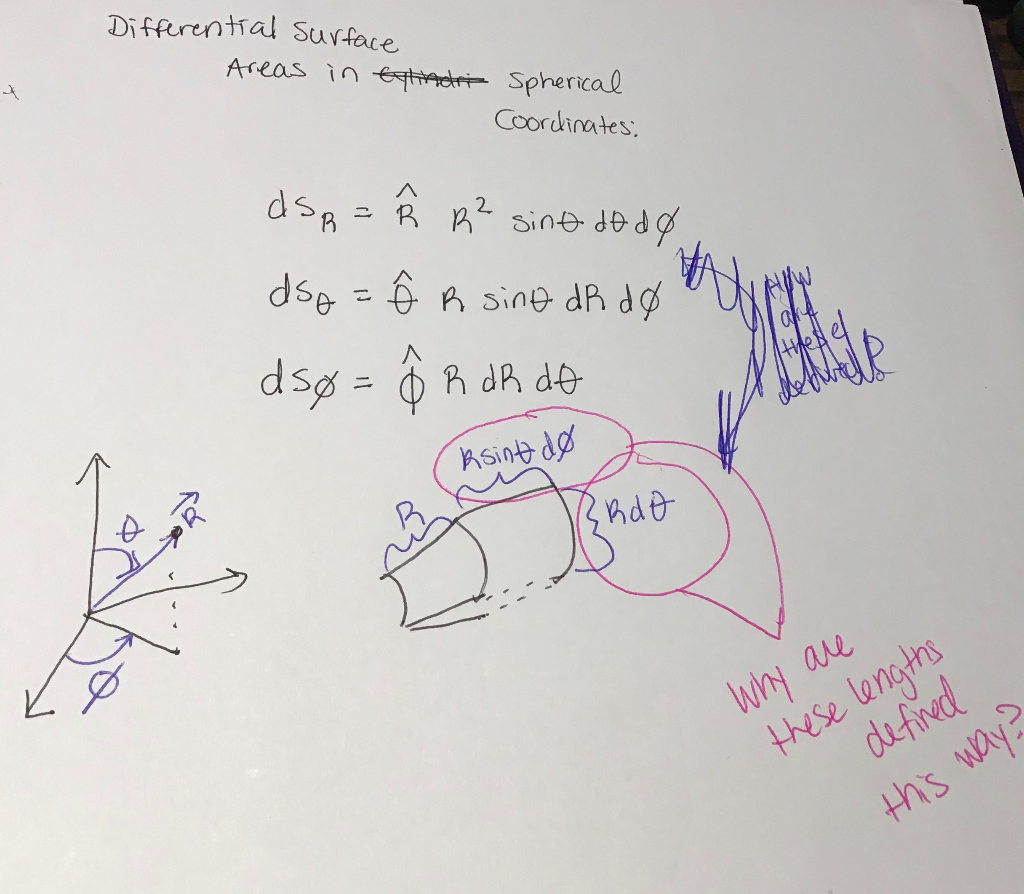 Differential Surface
Areas in Cylindri Spherical
Coordinates:
dS_R = R̂ R² sinθ dθ dϕ
dS_θ = θ̂ R sinθ dR dϕ
dSϕ = ϕ̂ R dR dθ
How
are
these
defined?
R sinθ dϕ
R
R dθ
θ
R⃗
ϕ
Why are
these lengths
defined
this way?